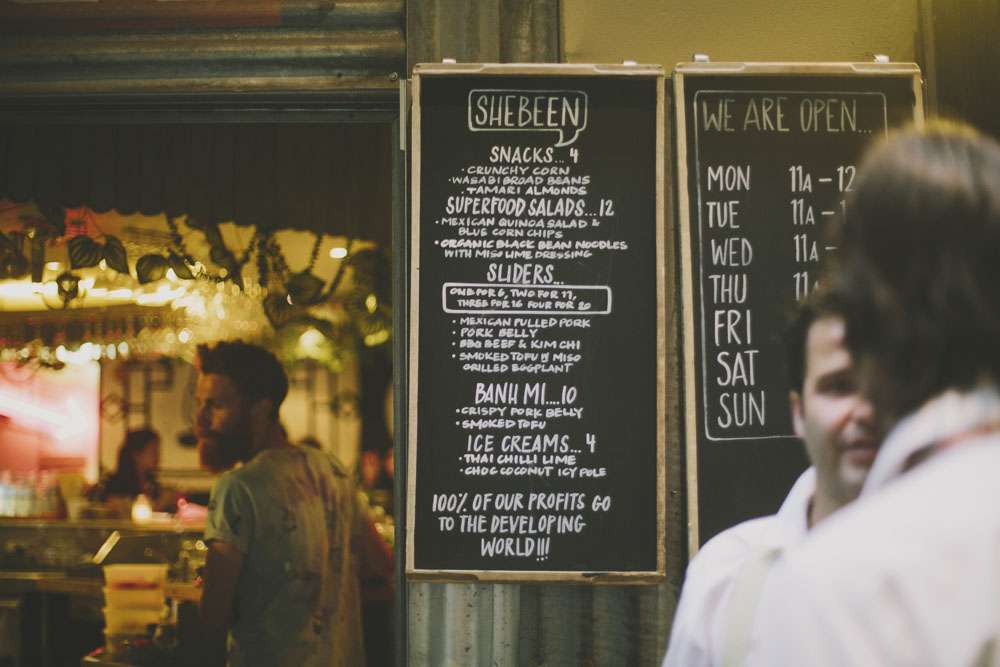 SHEBEEN
SNACKS... 4
• CRUNCHY CORN
• WASABI BROAD BEANS
• TAMARI ALMONDS
SUPERFOOD SALADS... 12
• MEXICAN QUINOA SALAD &
BLUE CORN CHIPS
• ORGANIC BLACK BEAN NOODLES
WITH MISO LIME DRESSING
SLIDERS...
ONE FOR 6, TWO FOR 11,
THREE FOR 16 FOUR FOR 20
• MEXICAN PULLED PORK
• PORK BELLY
• BBQ BEEF & KIM CHI
• SMOKED TOFU MISO
GRILLED EGGPLANT
BANH MI....10
• CRISPY PORK BELLY
• SMOKED TOFU
ICE CREAMS... 4
• THAI CHILLI LIME
• CHOC COCONUT ICY POLE
100% OF OUR PROFITS GO
TO THE DEVELOPING
WORLD!!!
WE ARE OPEN...
MON 11A - 12
TUE 11A -
WED 11A -
THU 11
FRI
SAT
SUN